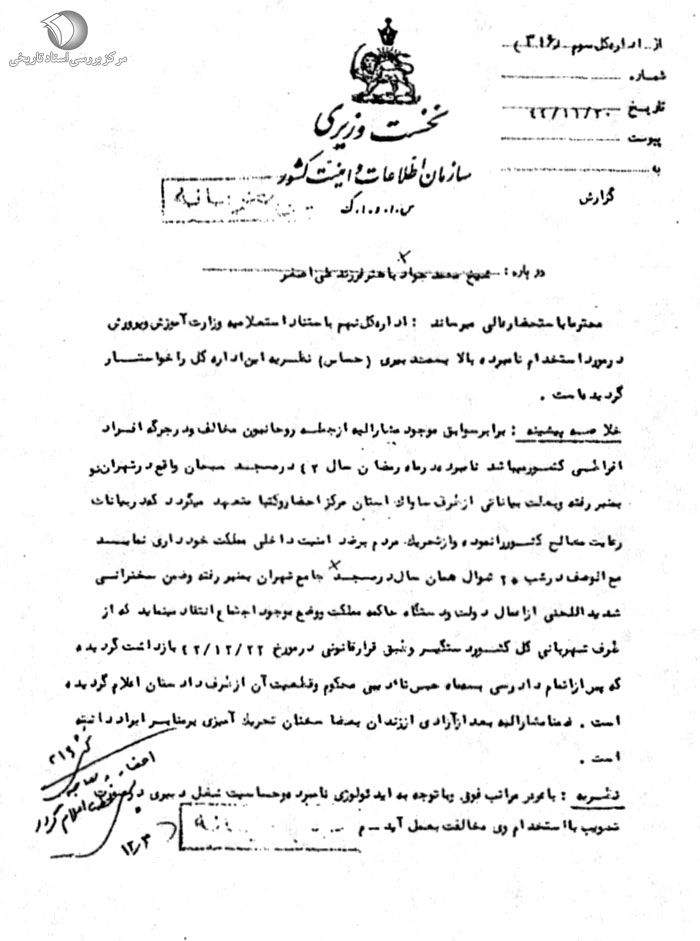 مرکز بررسی اسناد تاریخی
از اداره کل سوم (۳۱۶)
شماره
تاریخ ۴۲/۱۱/۲۰
پیوست
به
گزارش
نخست وزیری
سازمان اطلاعات و امنیت کشور
س.ا.و.ا.ک
درباره : شیخ محمد جواد باهنر فرزند علی اصغر
محترما باستحضارعالی میرساند : اداره کل نهم باستناد استعلامیه وزارت آموزش وپرورش
درمورد استخدام نامبرده بالا بسمت دبیری (حساس) نظریه این اداره کل را خواستـــار
گردیده است .
خلاصه پیشینه : برابر سوابق موجود مشارالیه ازجمله روحانیون مخالف ودرجرگه افـراد
افراطی کشور میباشد نامبرده در ماه رمضان سال ۴۲ درمسجد سبحان واقع درشهران نو
بمنبر رفته وبعلت بیاناتی از طرف ساواک استان مرکز احضار وکتبا متعهد میگردد که دربیانات
رعایت مصالح کشور را نموده وازتحریک مردم برضد امنیت داخلی مملکت خودداری نمایــد
مع الوصف درشب ۲۰ شوال همان سال درمسجد جامع شهران بمنبر رفته وضمن سخنرانی
شدید اللحنی از اعمال دولت ودستگاه حاکمه مملکت ووضع موجود اجتماع انتقاد مینماید که از
طرف شهربانی کل کشور دستگیر وطبق قرارقانونی درمورخ ۴۲/۱۲/۲۲ بازداشت گردیده
که پس ازانجام دادرسی بسه ماه حبس تادیبی محکوم وقطعیت آن ازطرف دادستان اعلام گردیده
است . ضمنا مشارالیه بعد ازآزادی اززندان بعضا سخنان تحریک آمیزی برمنابر ایراد داشته
است .
نظریه : باعرض مراتب فوق وباتوجه به ایدئولوژی نامبرده وحساسیت شغل دبیری
تصویب با استخدام وی مخالفت بعمل آید - م
اعلام گردد
۱۲/۳